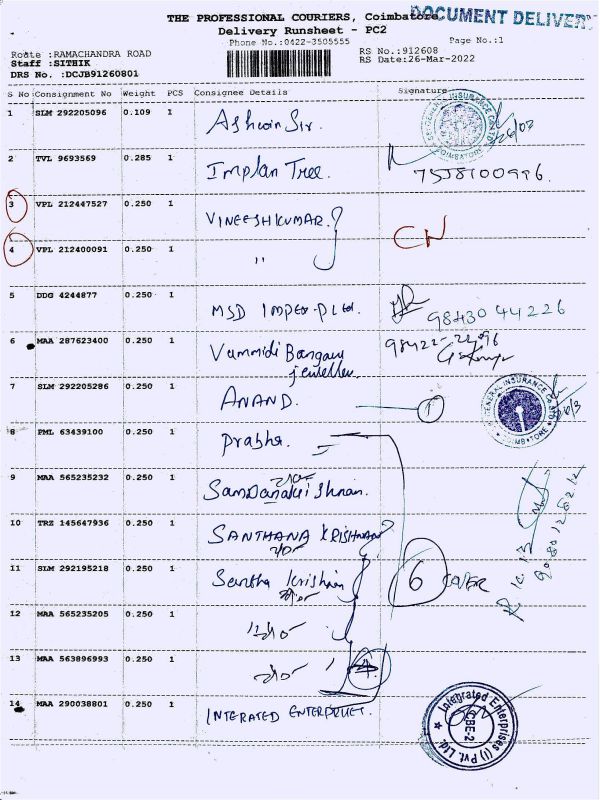 THE PROFESSIONAL COURIERS, Coimbatore
DOCUMENT DELIVERY
Delivery Runsheet - PC2
Phone No.:0422-3505555
Page No.:1
Route :RAMACHANDRA ROAD
RS No.:912608
Staff :SITHIK
RS Date:26-Mar-2022
DRS No. :DCJB91260801
S No Consignment No Weight PCS Consignee Details Signature
1 SLM 292205096 0.109 1 Ashwin Sir.
GENERAL INSURANCE CO LTD COIMBATORE
2 TVL 9693569 0.285 1 Implan Tree.
3 VPL 212447527 0.250 1 VINEESHKUMAR.
CN
4 VPL 212400091 0.250 1 "
5 DDG 4244877 0.250 1 MSD IMPEX-P Ltd. 98430 44226
6 MAA 287623400 0.250 1 Vummidi Bangaru
jewellers
7 SLM 292205286 0.250 1 ANAND. 1
GENERAL INSURANCE CO LTD COIMBATORE
8 PML 63439100 0.250 1 Prabha.
9 MAA 565235232 0.250 1
10 TRZ 145647936 0.250 1 SANTHANA KRISHNAN
11 SLM 292195218 0.250 1 Santha Krishnan 6 COVER
12 MAA 565235205 0.250 1
13 MAA 563896993 0.250 1
14 MAA 290038801 0.250 1 INTERATED ENTERPRISES.
Integrated Enterprises (I) Pvt. Ltd.
CBE-2